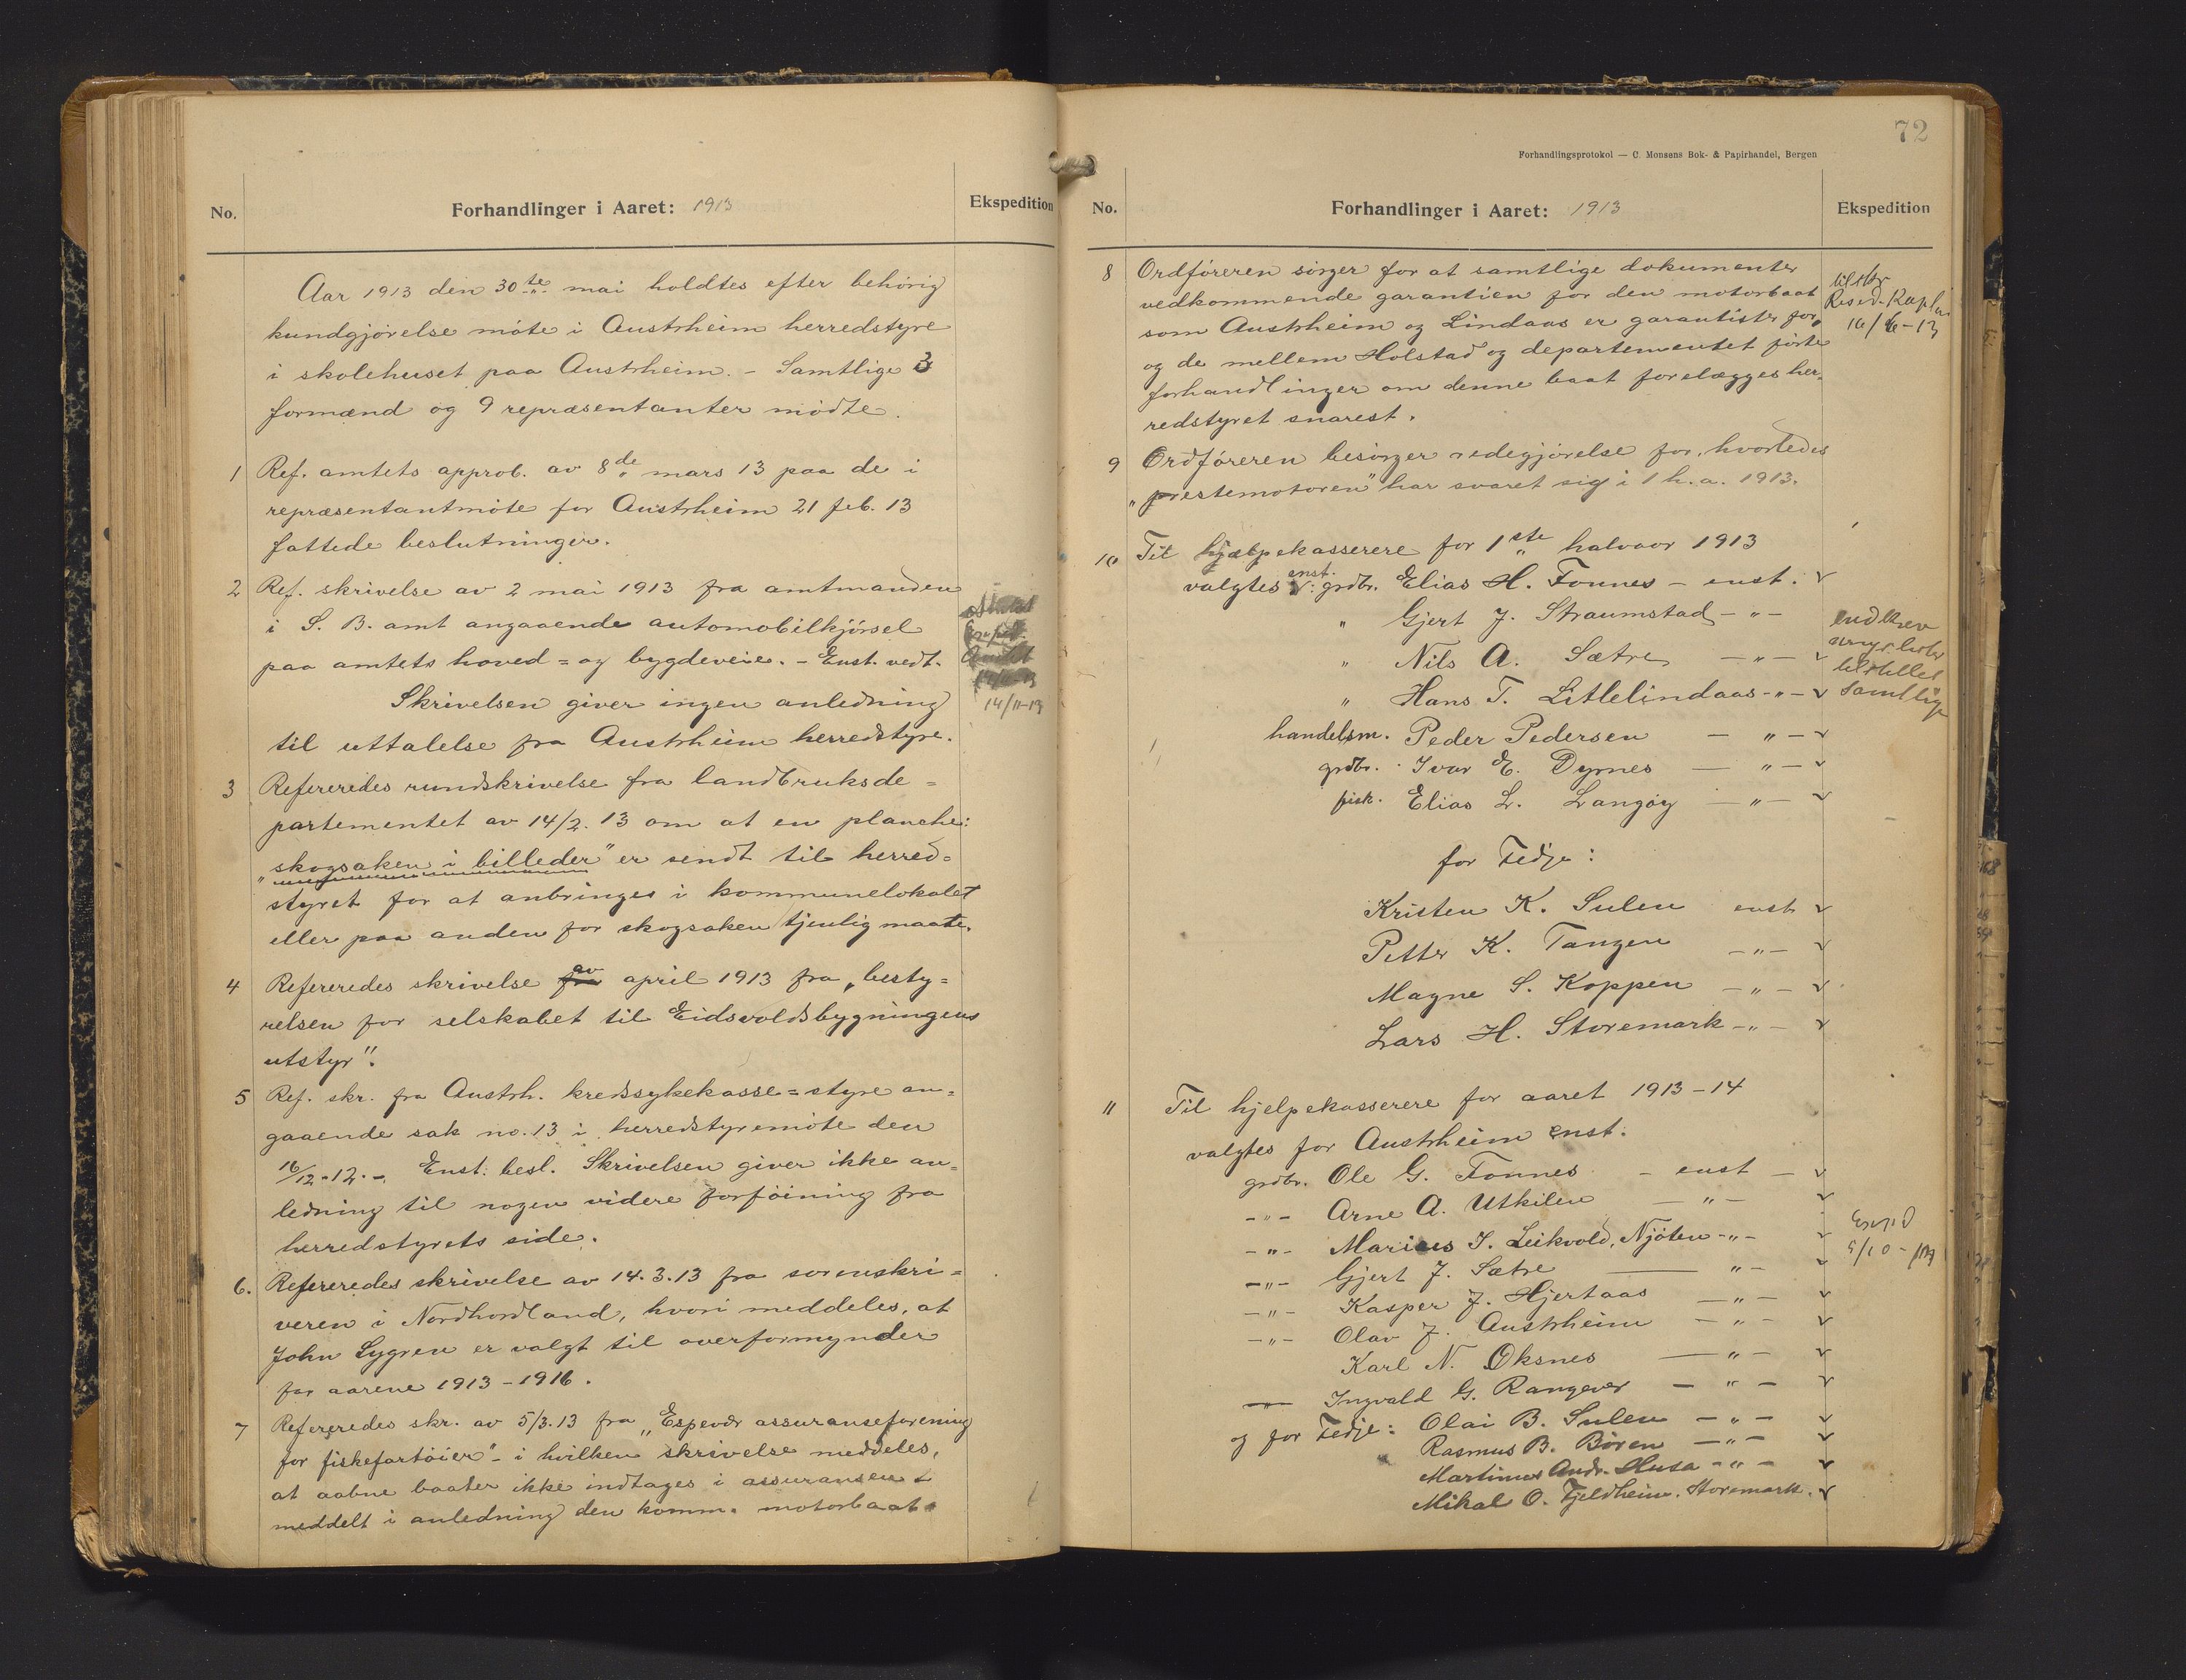 No.
Forhandlinger i Aaret: 1913
Ekspedition
Aar 1913 den 30te mai holdtes efter behørig
kundgjørelse møte i Austrheim herredstyre
i skolehuset paa Austrheim. - Samtlige 3
formænd og 9 repræsentanter mødte.
1 Ref. amtets approb. av 8de mars 13 paa de i
repræsentantmøte for Austrheim 21 feb. 13
fattede beslutninger.
2 Ref. skrivelse av 2 mai 1913 fra amtmanden
i S. B. amt angaaende automobilkjørsel
paa amtets hoved= og bygdeveie. - Enst. vedt.
Skrivelsen giver ingen anledning
til uttalelse fra Austrheim herredstyre.
14/11-13
3 Refereredes rundskrivelse fra landbruksde=
partementet av 14/2. 13 om at en planche:
"skogsaken i billeder" er sendt til herred=
styret for at anbringes i kommunelokalet
eller paa anden for skogsaken tjenlig maate.
4 Refereredes skrivelse av april 1913 fra "besty=
relsen for selskabet til Eidsvoldsbygningens
utstyr".
5 Ref. skr. fra Austrh. kredssykekasse=styre an=
gaaende sak no. 13 i herredstyremøte den
16/12-12. - Enst. besl. Skrivelsen giver ikke an=
ledning til nogen videre forføining fra
herredstyrets side.
6. Refereredes skrivelse av 14.3.13 fra sorenskri=
veren i Nordhordland, hvori meddeles, at
John Lygren er valgt til overformynder
for aarene 1913-1916.
7 Refereredes skr. av 5/3.13 fra "Espevær assuranseforening
for fiskefartøier" - i hvilken skrivelse meddeles,
at aabne baater ikke indtages i assuransen -
meddelt i anledning den komm. motorbaat.
72
Forhandlingsprotokol — C. Monsens Bok- & Papirhandel, Bergen
No.
Forhandlinger i Aaret: 1913
Ekspedition
8 Ordføreren sørger for at samtlige dokumenter
vedkommende garantien for den motorbaat
som Austrheim og Lindaas er garantister for,
og de mellem Holstad og departementet førte
forhandlinger om denne baat forelægges her=
redstyret snarest.
Resid. Kapl
16/6-13
9 Ordføreren besørger redegjørelse for, hvorledes
"prestemotoren" har svaret sig i 1 h.a. 1913.
10 Til hjælpekasserere for 1ste halvaar 1913
valgtes enst.: grdbr. Elias H. Fonnes - enst. v
" Gjert J. Straumstad - " -
" Nils A. Sætre - " - v
" Hans T. Litlelindaas - " - v
samtlige
handelsm. Peder Pedersen - " - v
grdbr. Ivar E. Dyrnes - " - v
fisk. Elias L. Langøy - " - v
for Fedje:
Kristen K. Sulen enst. v
Petter K. Tangen - " - v
Magne S. Koppen - " - v
Lars H. Storemark - " - v
11 Til hjelpekasserere for aaret 1913-14
valgtes for Austrheim enst.
grdbr. Ole G. Fonnes - enst - v
- " - Arne A. Utkilen - " - v
- " - Marius J. Leikvold, Njøten - " - v
- " - Gjert J. Sætre - " - v
- " - Kasper J. Hjertaas - " - v
- " - Olav J. Austrheim - " - v
Karl N. Oksnes - " - v
- " - Ingvald G. Rangøver - " - v
og for Fedje: Olai B. Sulen - " - v
Rasmus B. Børen - " - v
Martinus Andr. Husa - " - v
Mikal O. Fjeldheim. Storemark. v